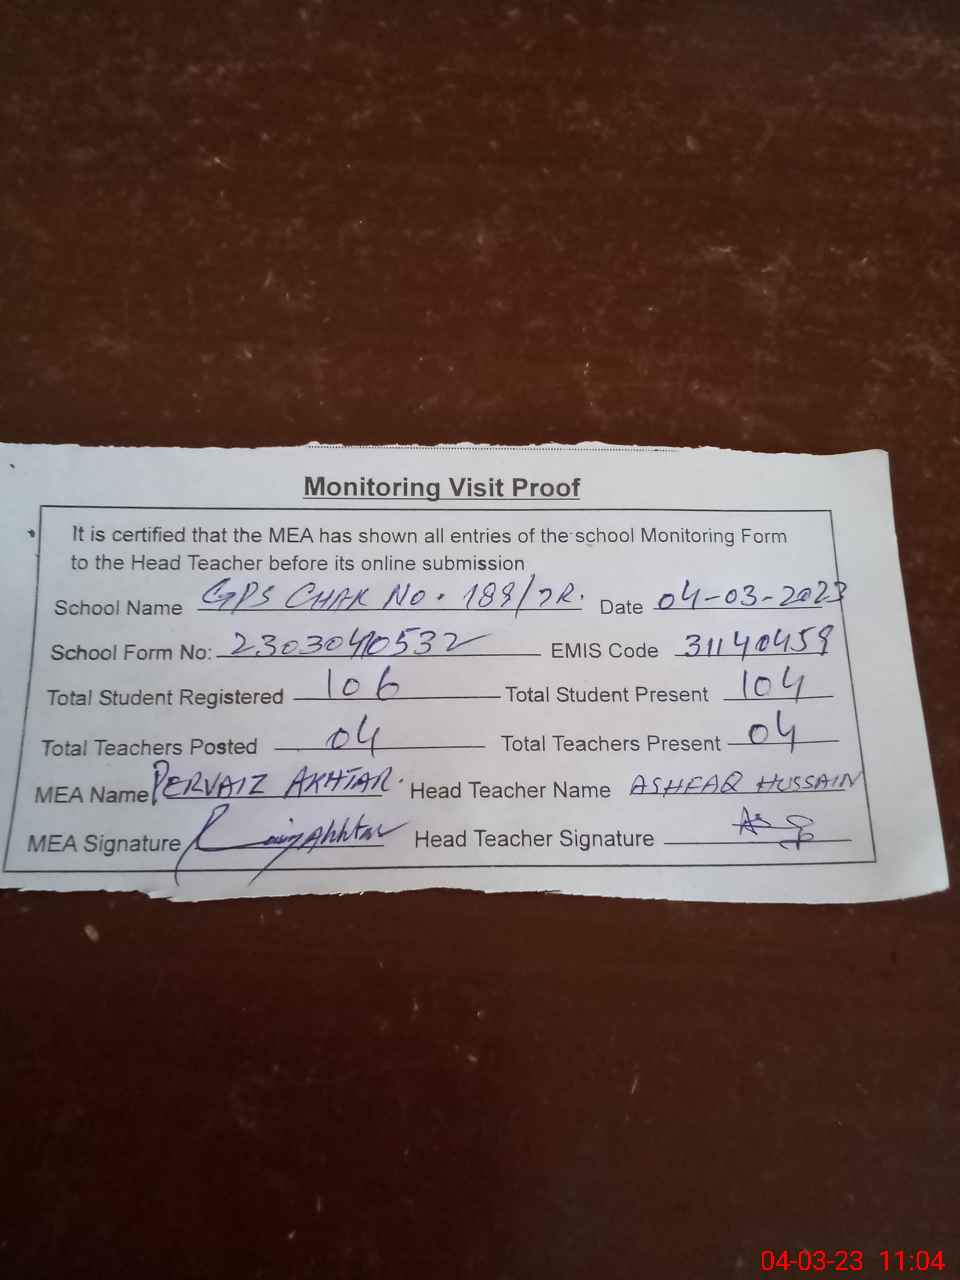 Monitoring Visit Proof
It is certified that the MEA has shown all entries of the school Monitoring Form
to the Head Teacher before its online submission
School Name GPS CHAK NO. 188/7R. Date 04-03-2023
School Form No: 23030410532 EMIS Code 31140459
Total Student Registered 106 Total Student Present 104
Total Teachers Posted 04 Total Teachers Present 04
MEA Name PERVAIZ AKHTAR. Head Teacher Name ASHFAQ HUSSAIN
MEA Signature Akhtar Head Teacher Signature
04-03-23 11:04